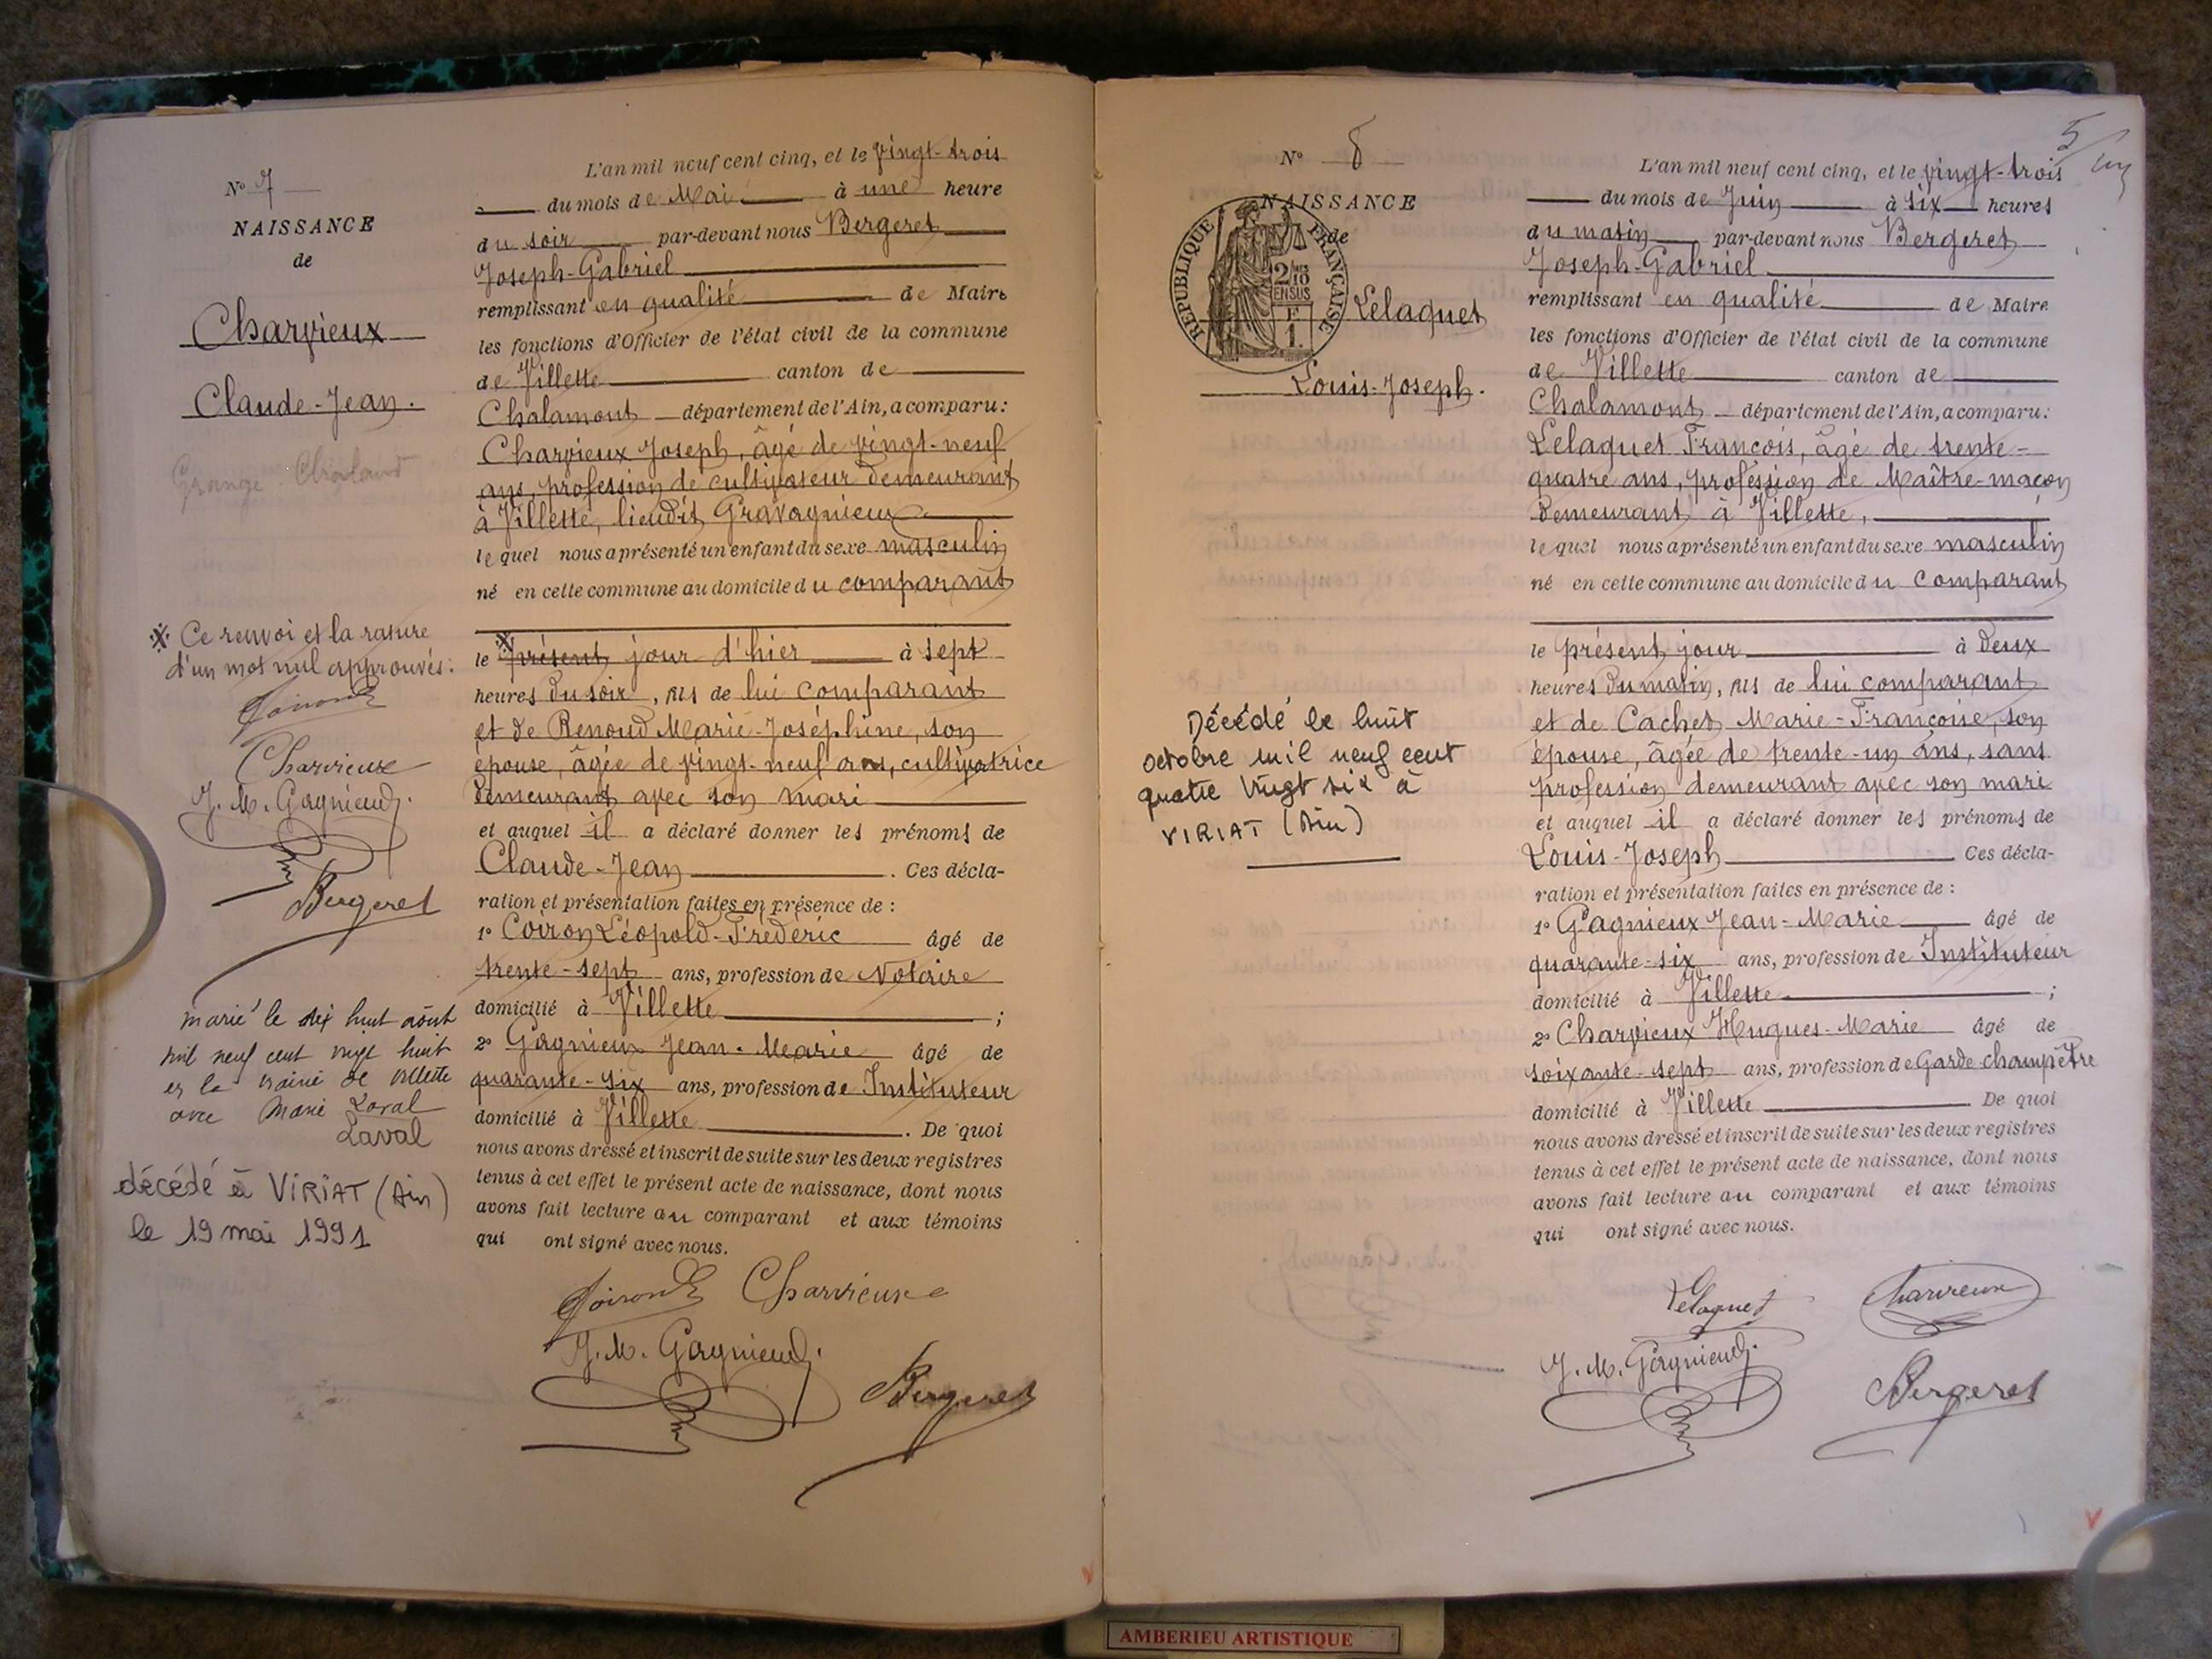 N° 7
NAISSANCE
de
Charvieux
Claude-Jean.
Grange Chaland
※ Ce renvoi et la rature
d'un mot nul approuvés:
Charvieux
J. M. Gagnieux.
Bergeret
marié le dix huit août
mil neuf cent vingt huit
à la mairie de Villette
avec Marie Laval
Laval
décédé à VIRIAT (Ain)
le 19 mai 1991
L'an mil neuf cent cinq, et le vingt-trois
du mois de Mai à une heure
du soir par-devant nous Bergeret
Joseph-Gabriel
remplissant en qualité de Maire
les fonctions d'Officier de l'état civil de la commune
de Villette canton de
Chalamont département de l'Ain, a comparu:
Charvieux Joseph, âgé de vingt-neuf
ans, profession de cultivateur demeurant
à Villette, lieudit Gravagnieux
lequel nous a présenté un enfant du sexe masculin
né en cette commune au domicile du comparant
le ※ présent jour d'hier à sept
heures du soir, fils de lui comparant
et de Renoud Marie-Joséphine, son
épouse, âgée de vingt-neuf ans, cultivatrice
demeurant avec son mari
et auquel il a déclaré donner les prénoms de
Claude-Jean. Ces décla-
ration et présentation faites en présence de :
1° Coiron Léopold-Frédéric âgé de
trente-sept ans, profession de Notaire
domicilié à Villette ;
2° Gagnieux Jean-Marie âgé de
quarante-six ans, profession de Instituteur
domicilié à Villette. De quoi
nous avons dressé et inscrit de suite sur les deux registres
tenus à cet effet le présent acte de naissance, dont nous
avons fait lecture au comparant et aux témoins
qui ont signé avec nous.
Coiron Charvieux
J. M. Gagnieux.
Bergeret
5
N° 8
NAISSANCE
de
REPUBLIQUE FRANÇAISE
2/10
EN SUS
1F
Lelaquet
Louis-Joseph.
Décédé le huit
octobre mil neuf cent
quatre vingt six à
VIRIAT (Ain)
L'an mil neuf cent cinq, et le vingt-trois
du mois de Juin à six heures
du matin par-devant nous Bergeret
Joseph-Gabriel
remplissant en qualité de Maire
les fonctions d'Officier de l'état civil de la commune
de Villette canton de
Chalamont département de l'Ain, a comparu:
Lelaquet François, âgé de trente-
quatre ans, profession de Maître-maçon
demeurant à Villette,
lequel nous a présenté un enfant du sexe masculin
né en cette commune au domicile du comparant
le présent jour à deux
heures du matin, fils de lui comparant
et de Cachet Marie-Françoise, son
épouse, âgée de trente-un ans, sans
profession demeurant avec son mari
et auquel il a déclaré donner les prénoms de
Louis-Joseph Ces décla-
ration et présentation faites en présence de :
1° Gagnieux Jean-Marie âgé de
quarante-six ans, profession de Instituteur
domicilié à Villette ;
2° Charvieux Hugues-Marie âgé de
soixante-sept ans, profession de Garde champêtre
domicilié à Villette De quoi
nous avons dressé et inscrit de suite sur les deux registres
tenus à cet effet le présent acte de naissance, dont nous
avons fait lecture au comparant et aux témoins
qui ont signé avec nous.
Lelaquet Charvieux
J. M. Gagnieux.
Bergeret
AMBERIEU ARTISTIQUE